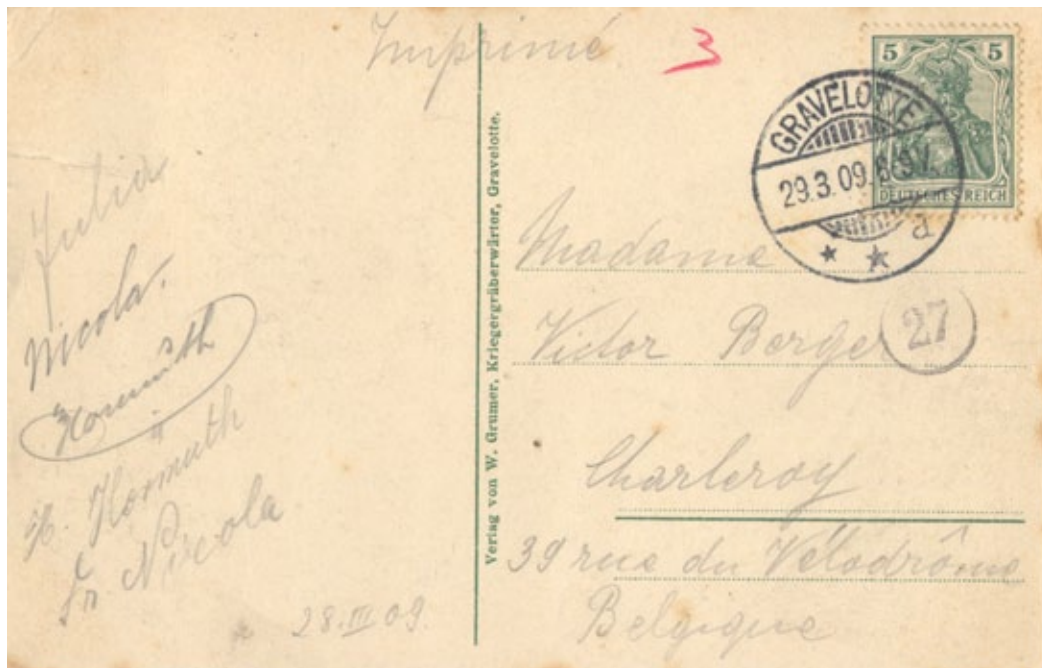 Imprimé
3
5 5
DEUTSCHES REICH
GRAVELOTTE
29.3.09.
a
Julia
Nicola.
Hormuth
H. Hormuth
Fr. Nicola
28.III 09.
Verlag von W. Grumer, Kriegergräberwärter, Gravelotte.
Madame
Victor Berger
27
Charleroy
39 rue du Vélodrôme
Belgique